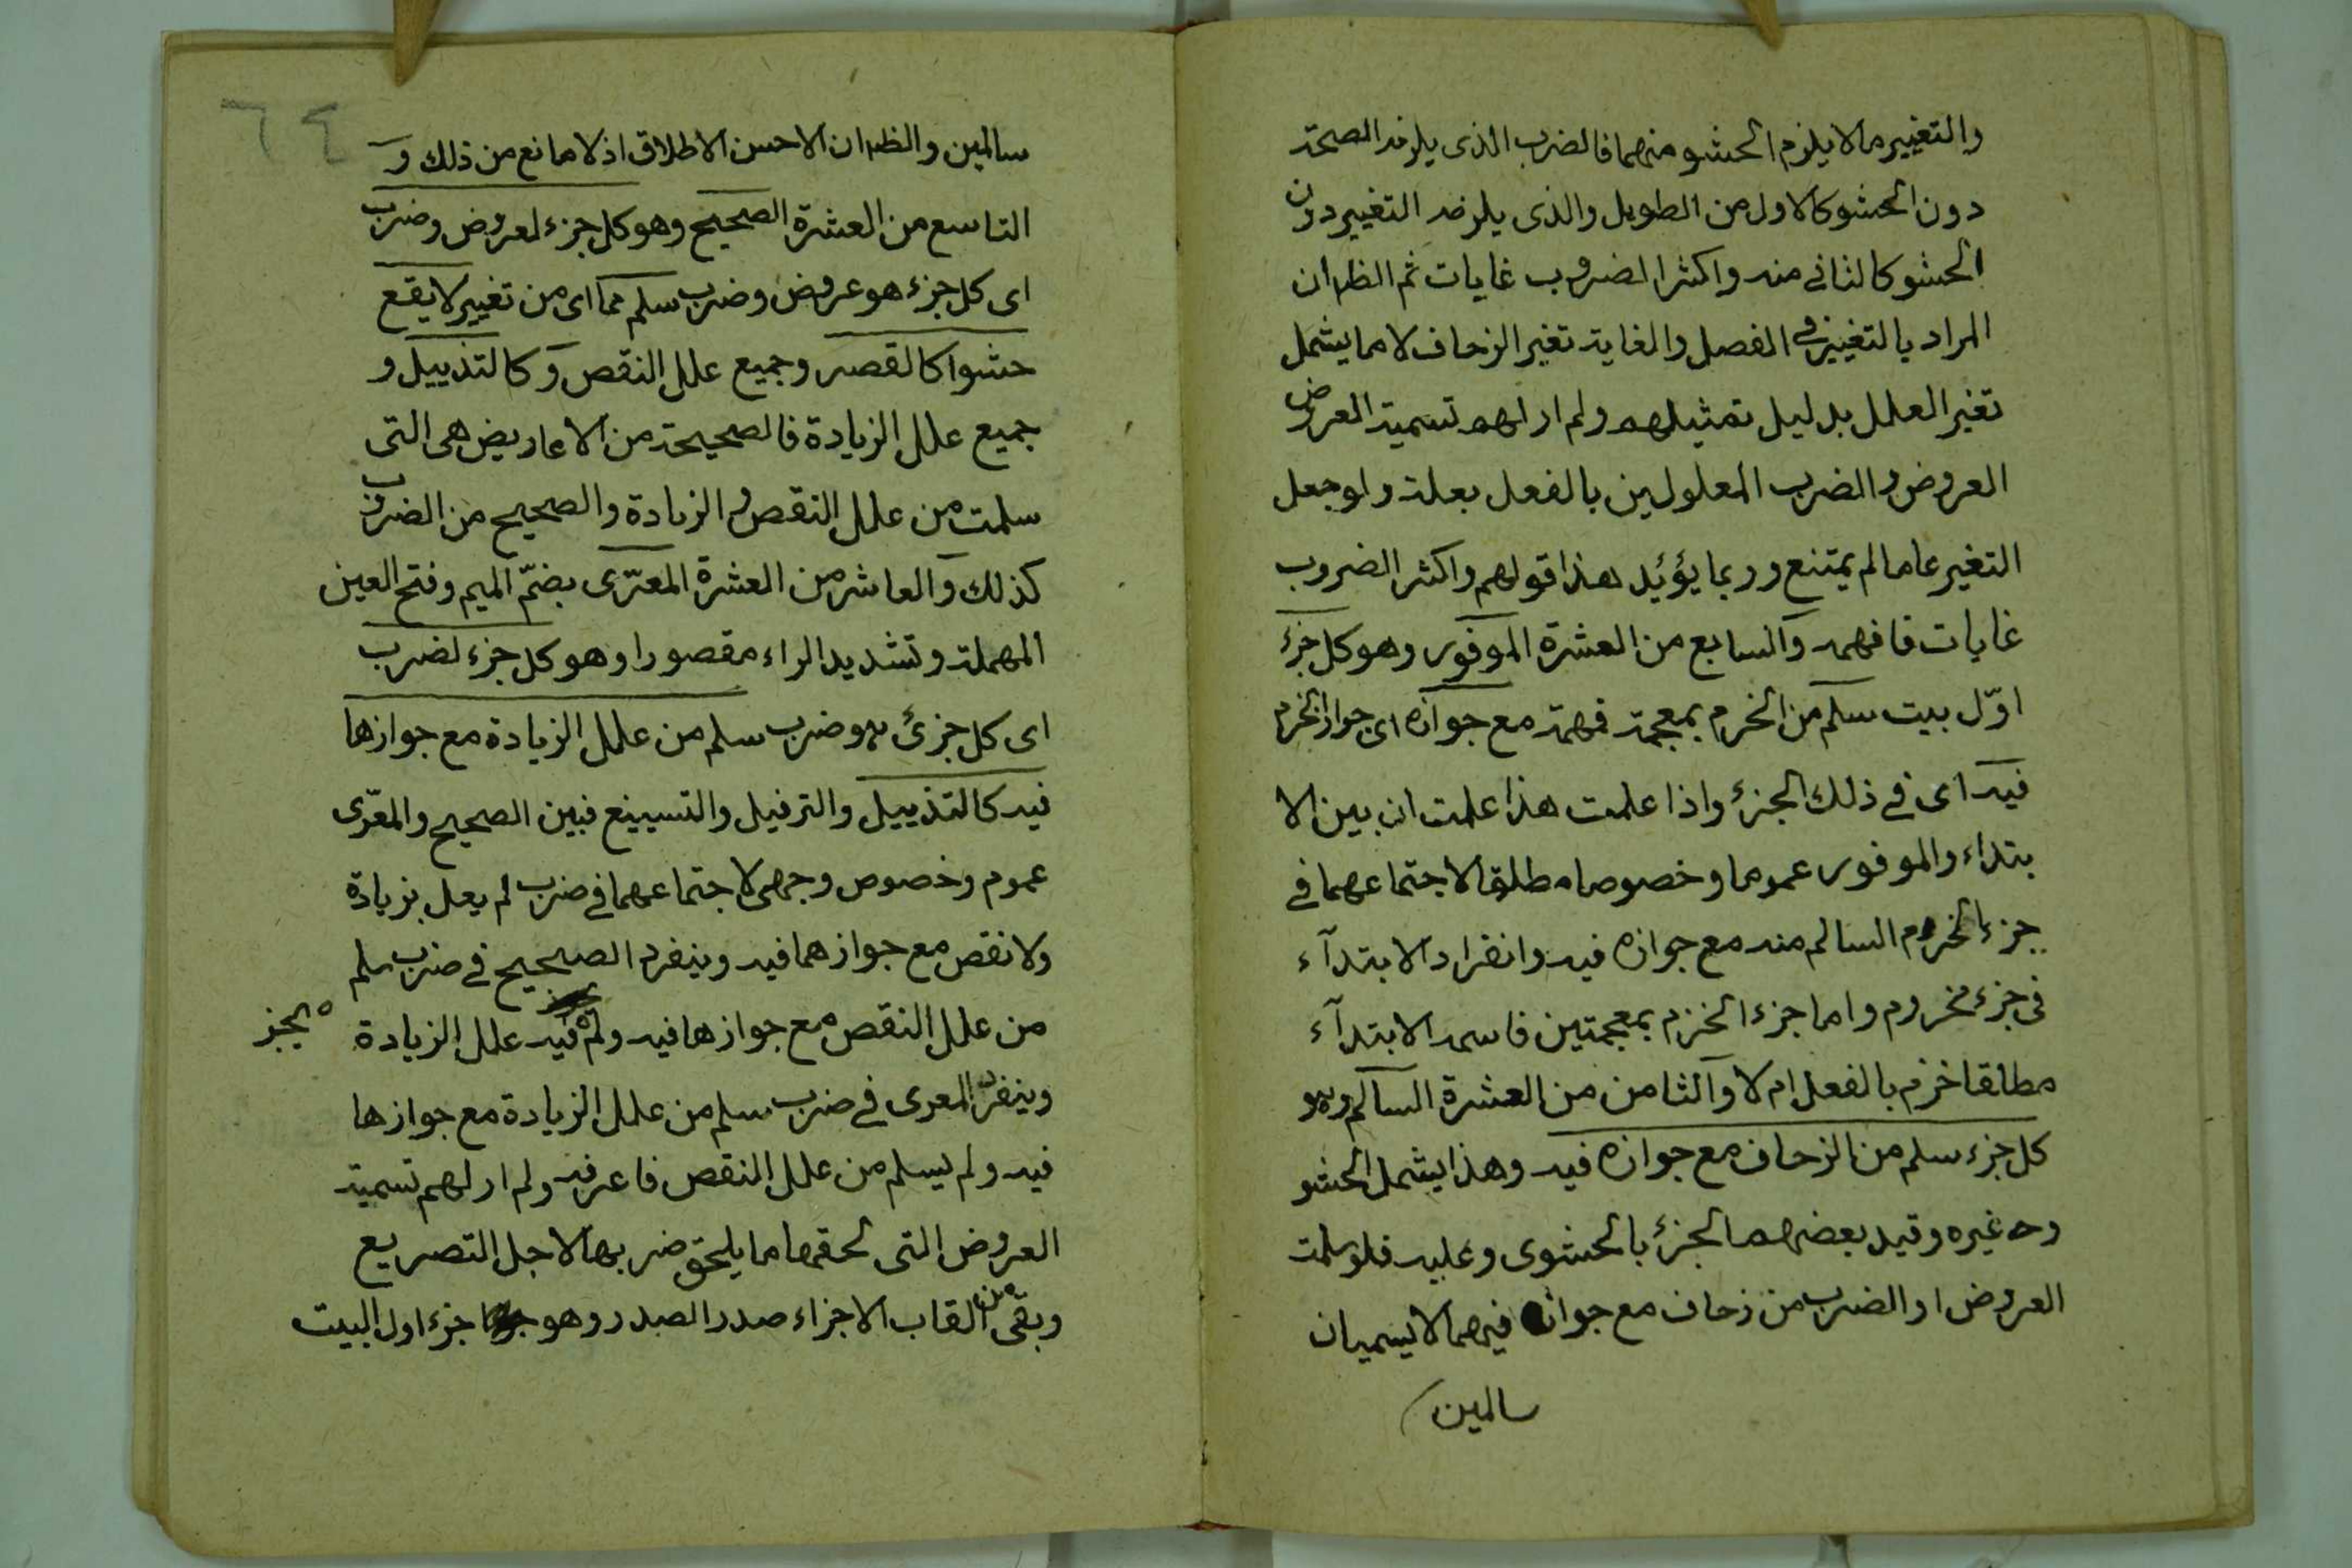 والتغيير ما لا يلزم الحشو منهما فالضرب الذى يلزمه الصحة
دون الحشو كالاول من الطويل والذى يلزمه التغيير دون
الحشو كالثانى منه واكثر الضروب غايات ثم الظ ان
المراد بالتغيير فى الفصل والغاية تغير الزحاف لا ما يشمل
تغير العلل بدليل تمثيلهم ولم ار لهم تسمية العروض
العروض والضرب المعلولين بالفعل بعلة ولو جعل
التغير عاما لم يمتنع وربما يؤيد هذا قولهم واكثر الضروب
غايات فافهمه والسابع من العشرة الموفور وهو كل جزء
اوّل بيت سلم من الخرم بمعجمة فمهمة مع جوازه اى جواز الخرم
فيه اى فى ذلك الجزء واذا علمت هذا علمت ان بين الا
بتداء والموفور عموما وخصوصا مطلقا لاجتماعهما فى
جزء الخروم السالم منه مع جوازه فيه وانفراد الابتدآء
فى جزء مخروم واما جزء الخزم بمعجمتين فاسمه الابتدآء
مطلقا خزم بالفعل ام لا والثامن من العشرة السالم وهو
كل جزء سلم من الزحاف مع جوازه فيه وهذا يشمل الحشو
وغيره وقيد بعضهم الجزء بالحشوى وعليه فلو سلمت
العروض او الضرب من زحاف مع جوازه فيهما لا يسميان
سالمين
٦٤
سالمين والظ ان الاحسن الاطلاق اذ لا مانع من ذلك و
التاسع من العشرة الصحيح وهو كل جزء لعروض وضرب
اى كل جزء هو عروض وضرب سلم مما اى من تغيير لا يقع
حشوا كالقصر وجميع علل النقص وكالتذييل و
جميع علل الزيادة فالصحيحة من الاعاريض هى التى
سلمت من علل النقص والزيادة والصحيح من الضروب
كذلك والعاشر من العشرة المعرّى بضمّ الميم وفتح العين
المهملة وتشديد الراء مقصورا وهو كل جزء لضرب
اى كل جزئ هو ضرب سلم من علل الزيادة مع جوازها
فيه كالتذييل والترفيل والتسبيغ فبين الصحيح والمعّرى
عموم وخصوص وجهى لاجتماعهما فى ضرب لم يعل بزيادة
ولا نقص مع جوازهما فيه وينفرد الصحيح فى ضرب سلم
من علل النقص مع جوازها فيه ولم يجز فيه علل الزيادة
وينفرد المعرى فى ضرب سلم من علل الزيادة مع جوازها
فيه ولم يسلم من علل النقص فاعرفه ولم ار لهم تسمية
العروض التى لحقها ما يلحق ضربها لاجل التصريع
وبقى من القاب الاجزاء صدر الصدر وهو جزء اول البيت